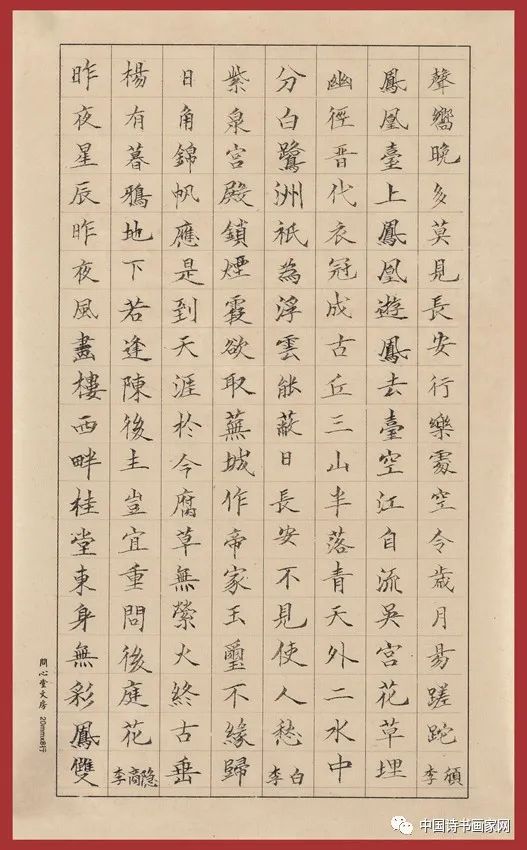 聲嚮晚多莫見長安行樂處空令歲月易蹉跎李頎
鳳凰臺上鳳凰遊鳳去臺空江自流吳宮花草埋
幽徑晋代衣冠成古丘三山半落青天外二水中
分白鷺洲祇為浮雲能蔽日長安不見使人愁李白
紫泉宮殿鎖煙霞欲取蕪城作帝家玉璽不緣歸
日角錦帆應是到天涯於今腐草無螢火終古垂
楊有暮鴉地下若逢陳後主豈宜重問後庭花李商隐
昨夜星辰昨夜風畫樓西畔桂堂東身無彩鳳雙
問心堂文房 20mmx8行
中国诗书画家网